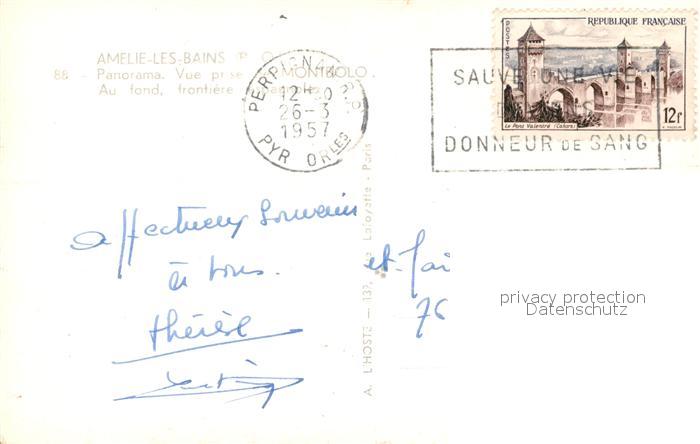 AMELIE-LES-BAINS (P. O.)
88 - Panorama. Vue prise de MONTBOLO.
Au fond, frontière espagnole
PERPIGNAN R.P.
12 30
26-3
1957
PYR ORLES
REPUBLIQUE FRANÇAISE
POSTES
Le Pont Valentré (Cahors)
12F
SAUVER UNE VIE
DONNEUR DE SANG
affectueux Souvenir
à tous.
thérèse
et
76
A. L'HOSTE - 137, Rue Lafayette - Paris
privacy protection
Datenschutz